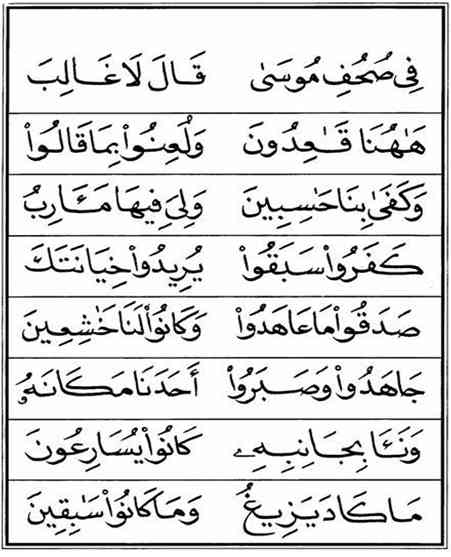 فِى صُحُفِ مُوسَىٰ قَالَ لَا غَالِبَ
هَٰهُنَا قَٰعِدُونَ وَلُعِنُوا۟ بِمَا قَالُوا۟
وَكَفَىٰ بِنَا حَٰسِبِينَ وَلِىَ فِيهَا مَـَٔارِبُ
كَفَرُوا۟ سَبَقُوا۟ يُرِيدُوا۟ خِيَانَتَكَ
صَدَقُوا۟ مَا عَاهَدُوا۟ وَكَانُوا۟ لَنَا خَٰشِعِينَ
جَاهَدُوا۟ وَصَبَرُوا۟ أَحَدَنَا مَكَانَهُۥ
وَنَـَٔا بِجَانِبِهِۦ كَانُوا۟ يُسَارِعُونَ
مَا كَادَ يَزِيغُ وَمَا كَانُوا۟ سَٰبِقِينَ